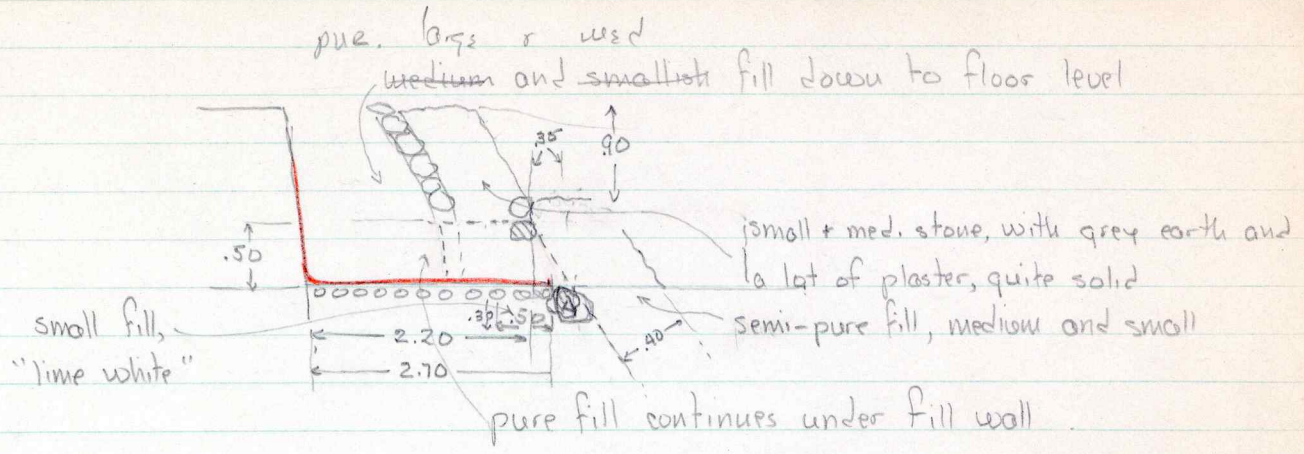 pure. large & med
medium and smallish fill down to floor level
.35
.90
small + med. stone, with grey earth and
a lot of plaster, quite solid
.50
semi-pure fill, medium and small
small fill,
"lime white"
.30 .50
2.20
.40
2.70
pure fill continues under fill wall